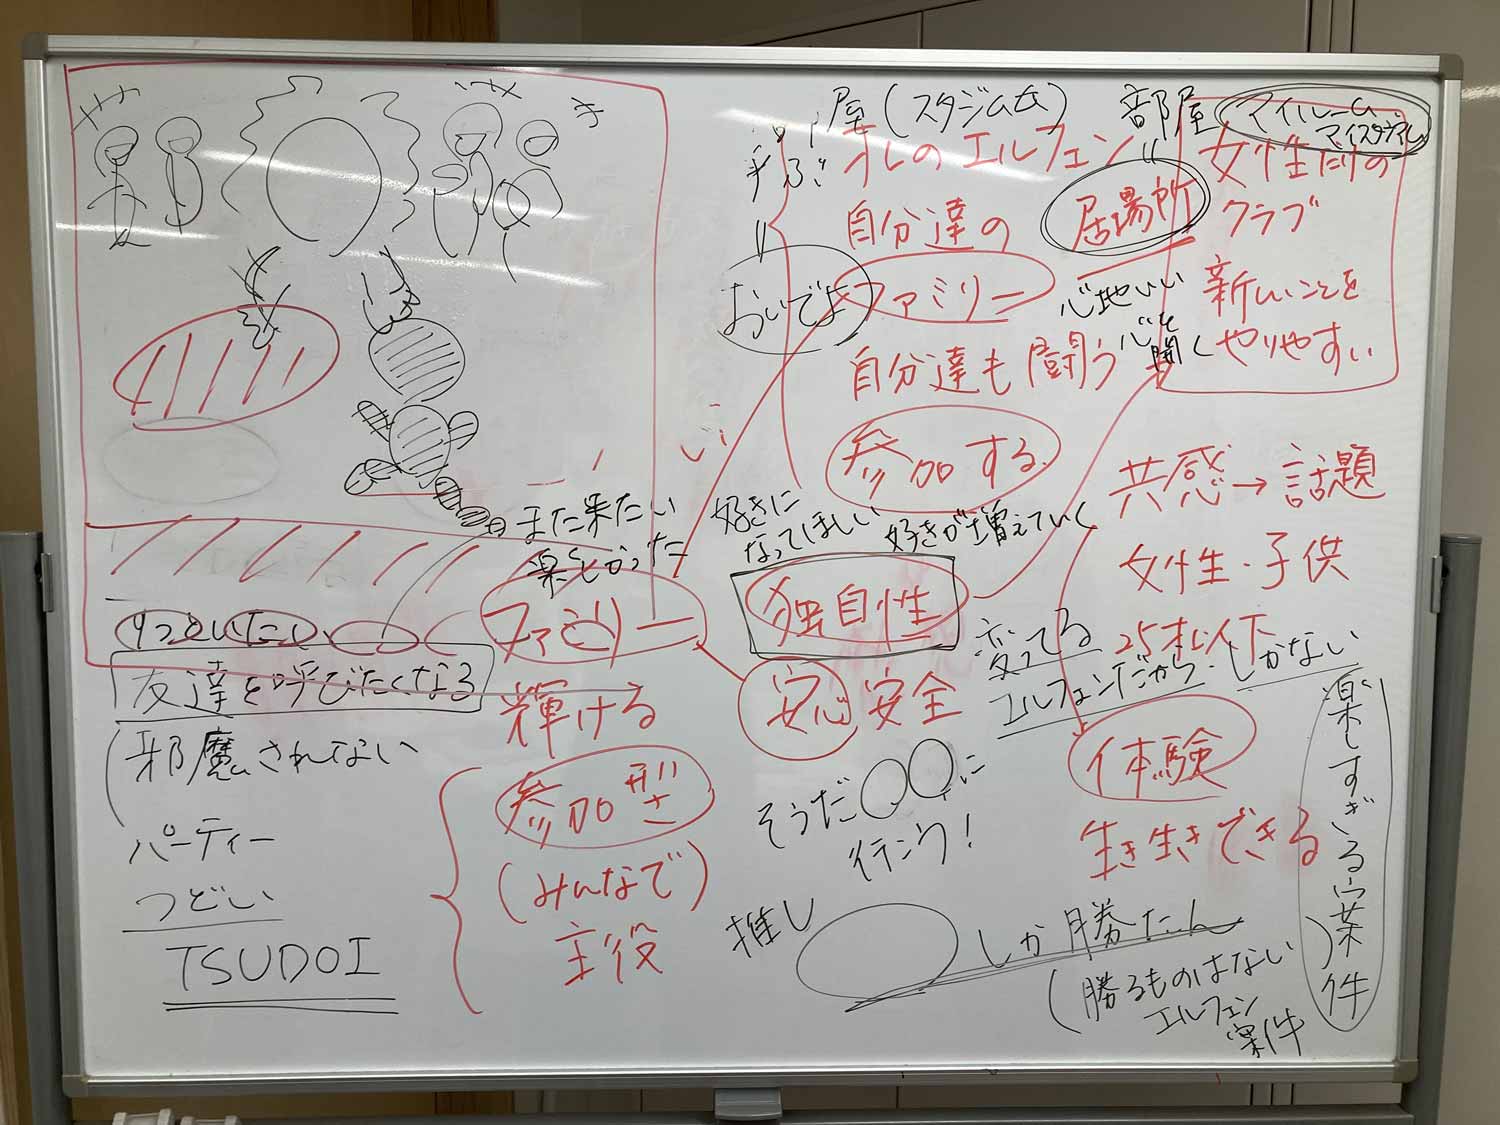 屋(スタジアム)
部屋
マイルーム
マイスタジアム
オレのエルフェン
女性だけの
クラブ
手ぶ
自分達の
居場所
おいでよ
ファミリー
心地いい
新しいことを
自分達も闘う
心を
開く
やりやすい
参加する
共感→話題
また来たい
楽しかった
好きに
なってほしい
好きが増えていく
女性・子供
ファミリー
独自性
変ってる
25才以下
エルフェンだから
しかない
ずっといたい
友達を呼びたくなる
輝ける
安心
安全
邪魔されない
参加型
体験
そうだ○○に
行こう!
生き生きできる
楽しすぎる案件
パーティー
つどい
(みんなで)
主役
TSUDOI
推し
しか勝たん
(勝るものはない
エルフェン
案件